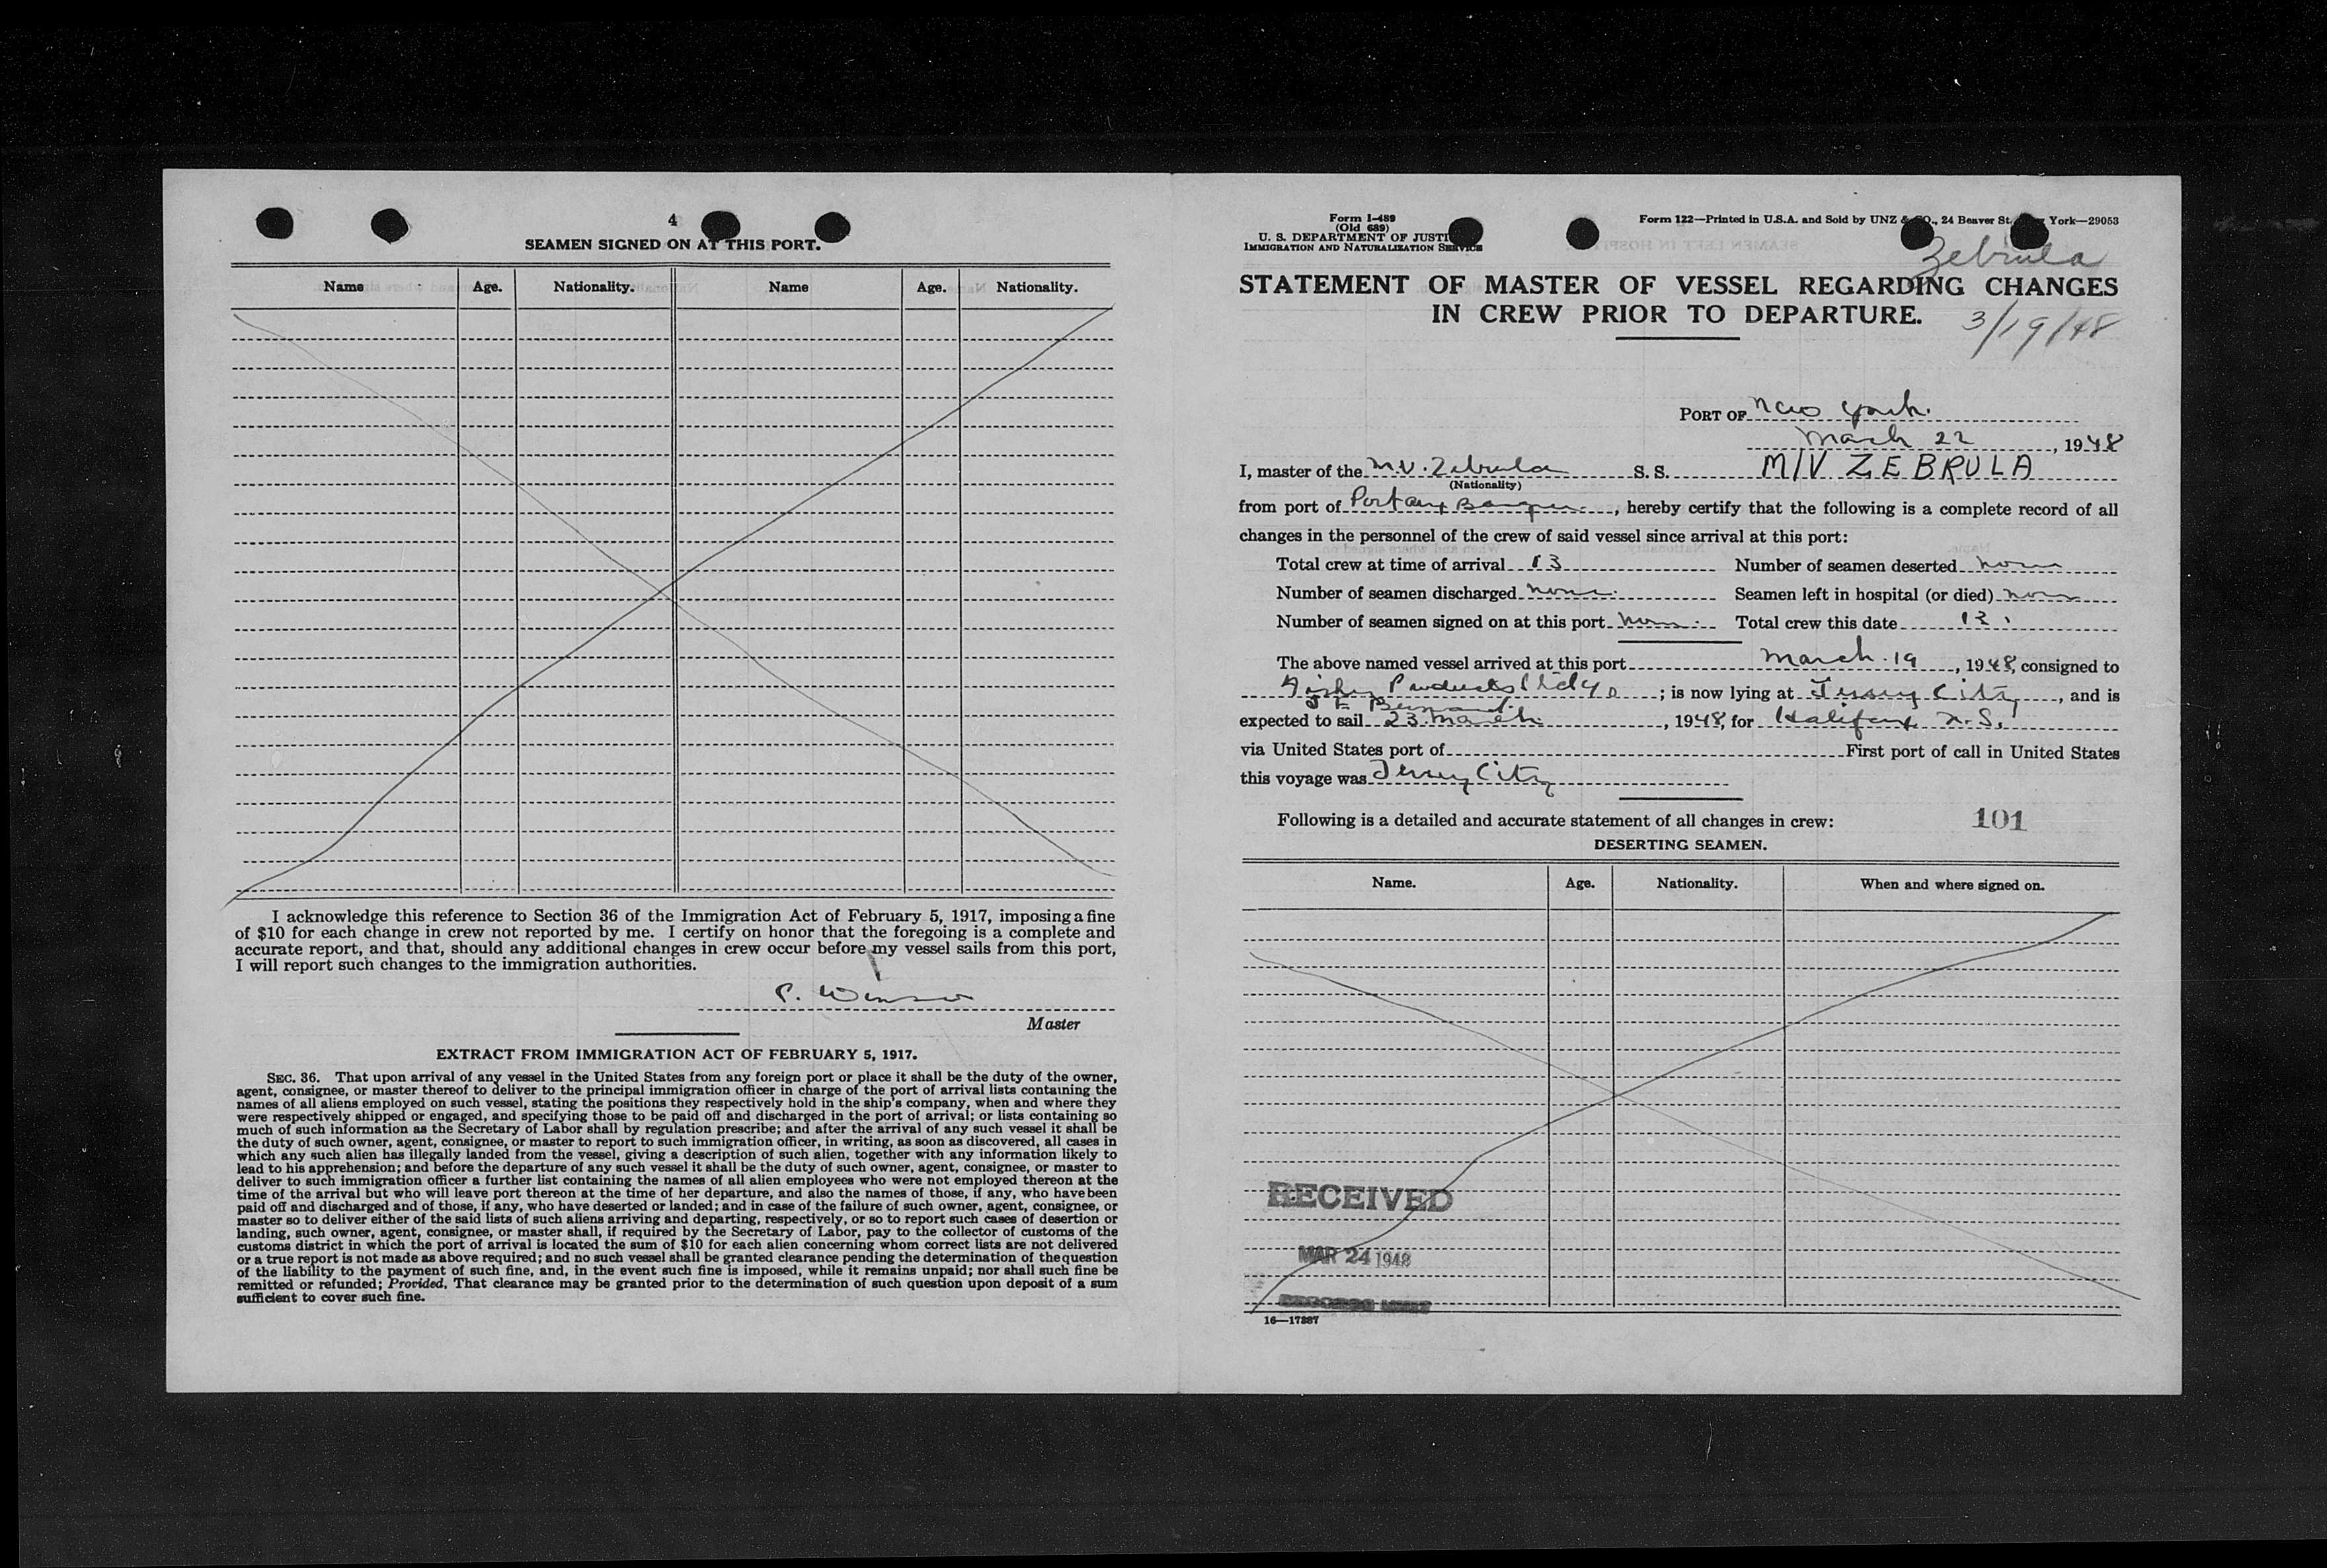 4
SEAMEN SIGNED ON AT THIS PORT.
Name Age. Nationality. Name Age. Nationality.
I acknowledge this reference to Section 36 of the Immigration Act of February 5, 1917, imposing a fine
of $10 for each change in crew not reported by me. I certify on honor that the foregoing is a complete and
accurate report, and that, should any additional changes in crew occur before my vessel sails from this port,
I will report such changes to the immigration authorities.
Master
EXTRACT FROM IMMIGRATION ACT OF FEBRUARY 5, 1917.
SEC. 36. That upon arrival of any vessel in the United States from any foreign port or place it shall be the duty of the owner,
agent, consignee, or master thereof to deliver to the principal immigration officer in charge of the port of arrival lists containing the
names of all aliens employed on such vessel, stating the positions they respectively hold in the ship's company, when and where they
were respectively shipped or engaged, and specifying those to be paid off and discharged in the port of arrival; or lists containing so
much of such information as the Secretary of Labor shall by regulation prescribe; and after the arrival of any such vessel it shall be
the duty of such owner, agent, consignee, or master to report to such immigration officer, in writing, as soon as discovered, all cases in
which any such alien has illegally landed from the vessel, giving a description of such alien, together with any information likely to
lead to his apprehension; and before the departure of any such vessel it shall be the duty of such owner, agent, consignee, or master to
deliver to such immigration officer a further list containing the names of all alien employees who were not employed thereon at the
time of the arrival but who will leave port thereon at the time of her departure, and also the names of those, if any, who have been
paid off and discharged and of those, if any, who have deserted or landed; and in case of the failure of such owner, agent, consignee, or
master so to deliver either of the said lists of such aliens arriving and departing, respectively, or so to report such cases of desertion or
landing, such owner, agent, consignee, or master shall, if required by the Secretary of Labor, pay to the collector of customs of the
customs district in which the port of arrival is located the sum of $10 for each alien concerning whom correct lists are not delivered
or a true report is not made as above required; and no such vessel shall be granted clearance pending the determination of the question
of the liability to the payment of such fine, and, in the event such fine is imposed, while it remains unpaid; nor shall such fine be
remitted or refunded; Provided, That clearance may be granted prior to the determination of such question upon deposit of a sum
sufficient to cover such fine.
Form I-489
(Old 689)
U. S. DEPARTMENT OF JUSTI
IMMIGRATION AND NATURALIZATION SERVICE
Form 122—Printed in U.S.A. and Sold by UNZ & CO., 24 Beaver St. York—29053
Zebrula
STATEMENT OF MASTER OF VESSEL REGARDING CHANGES
IN CREW PRIOR TO DEPARTURE.
3/19/48
PORT OF New York.
March 22, 1948
I, master of the M.V. Zebrula S. S. M/V ZEBRULA
(Nationality)
from port of Port aux Basques, hereby certify that the following is a complete record of all
changes in the personnel of the crew of said vessel since arrival at this port:
Total crew at time of arrival 13 Number of seamen deserted none
Number of seamen discharged none. Seamen left in hospital (or died) none
Number of seamen signed on at this port none. Total crew this date 13.
The above named vessel arrived at this port March 19, 1948, consigned to
Fishery Products Ltd ; is now lying at Jersey City, and is
expected to sail 23 March, 1948, for Halifax N.S.
via United States port of First port of call in United States
this voyage was Jersey City
Following is a detailed and accurate statement of all changes in crew: 101
DESERTING SEAMEN.
Name. Age. Nationality. When and where signed on.
RECEIVED
MAR 24 1948
16—17887